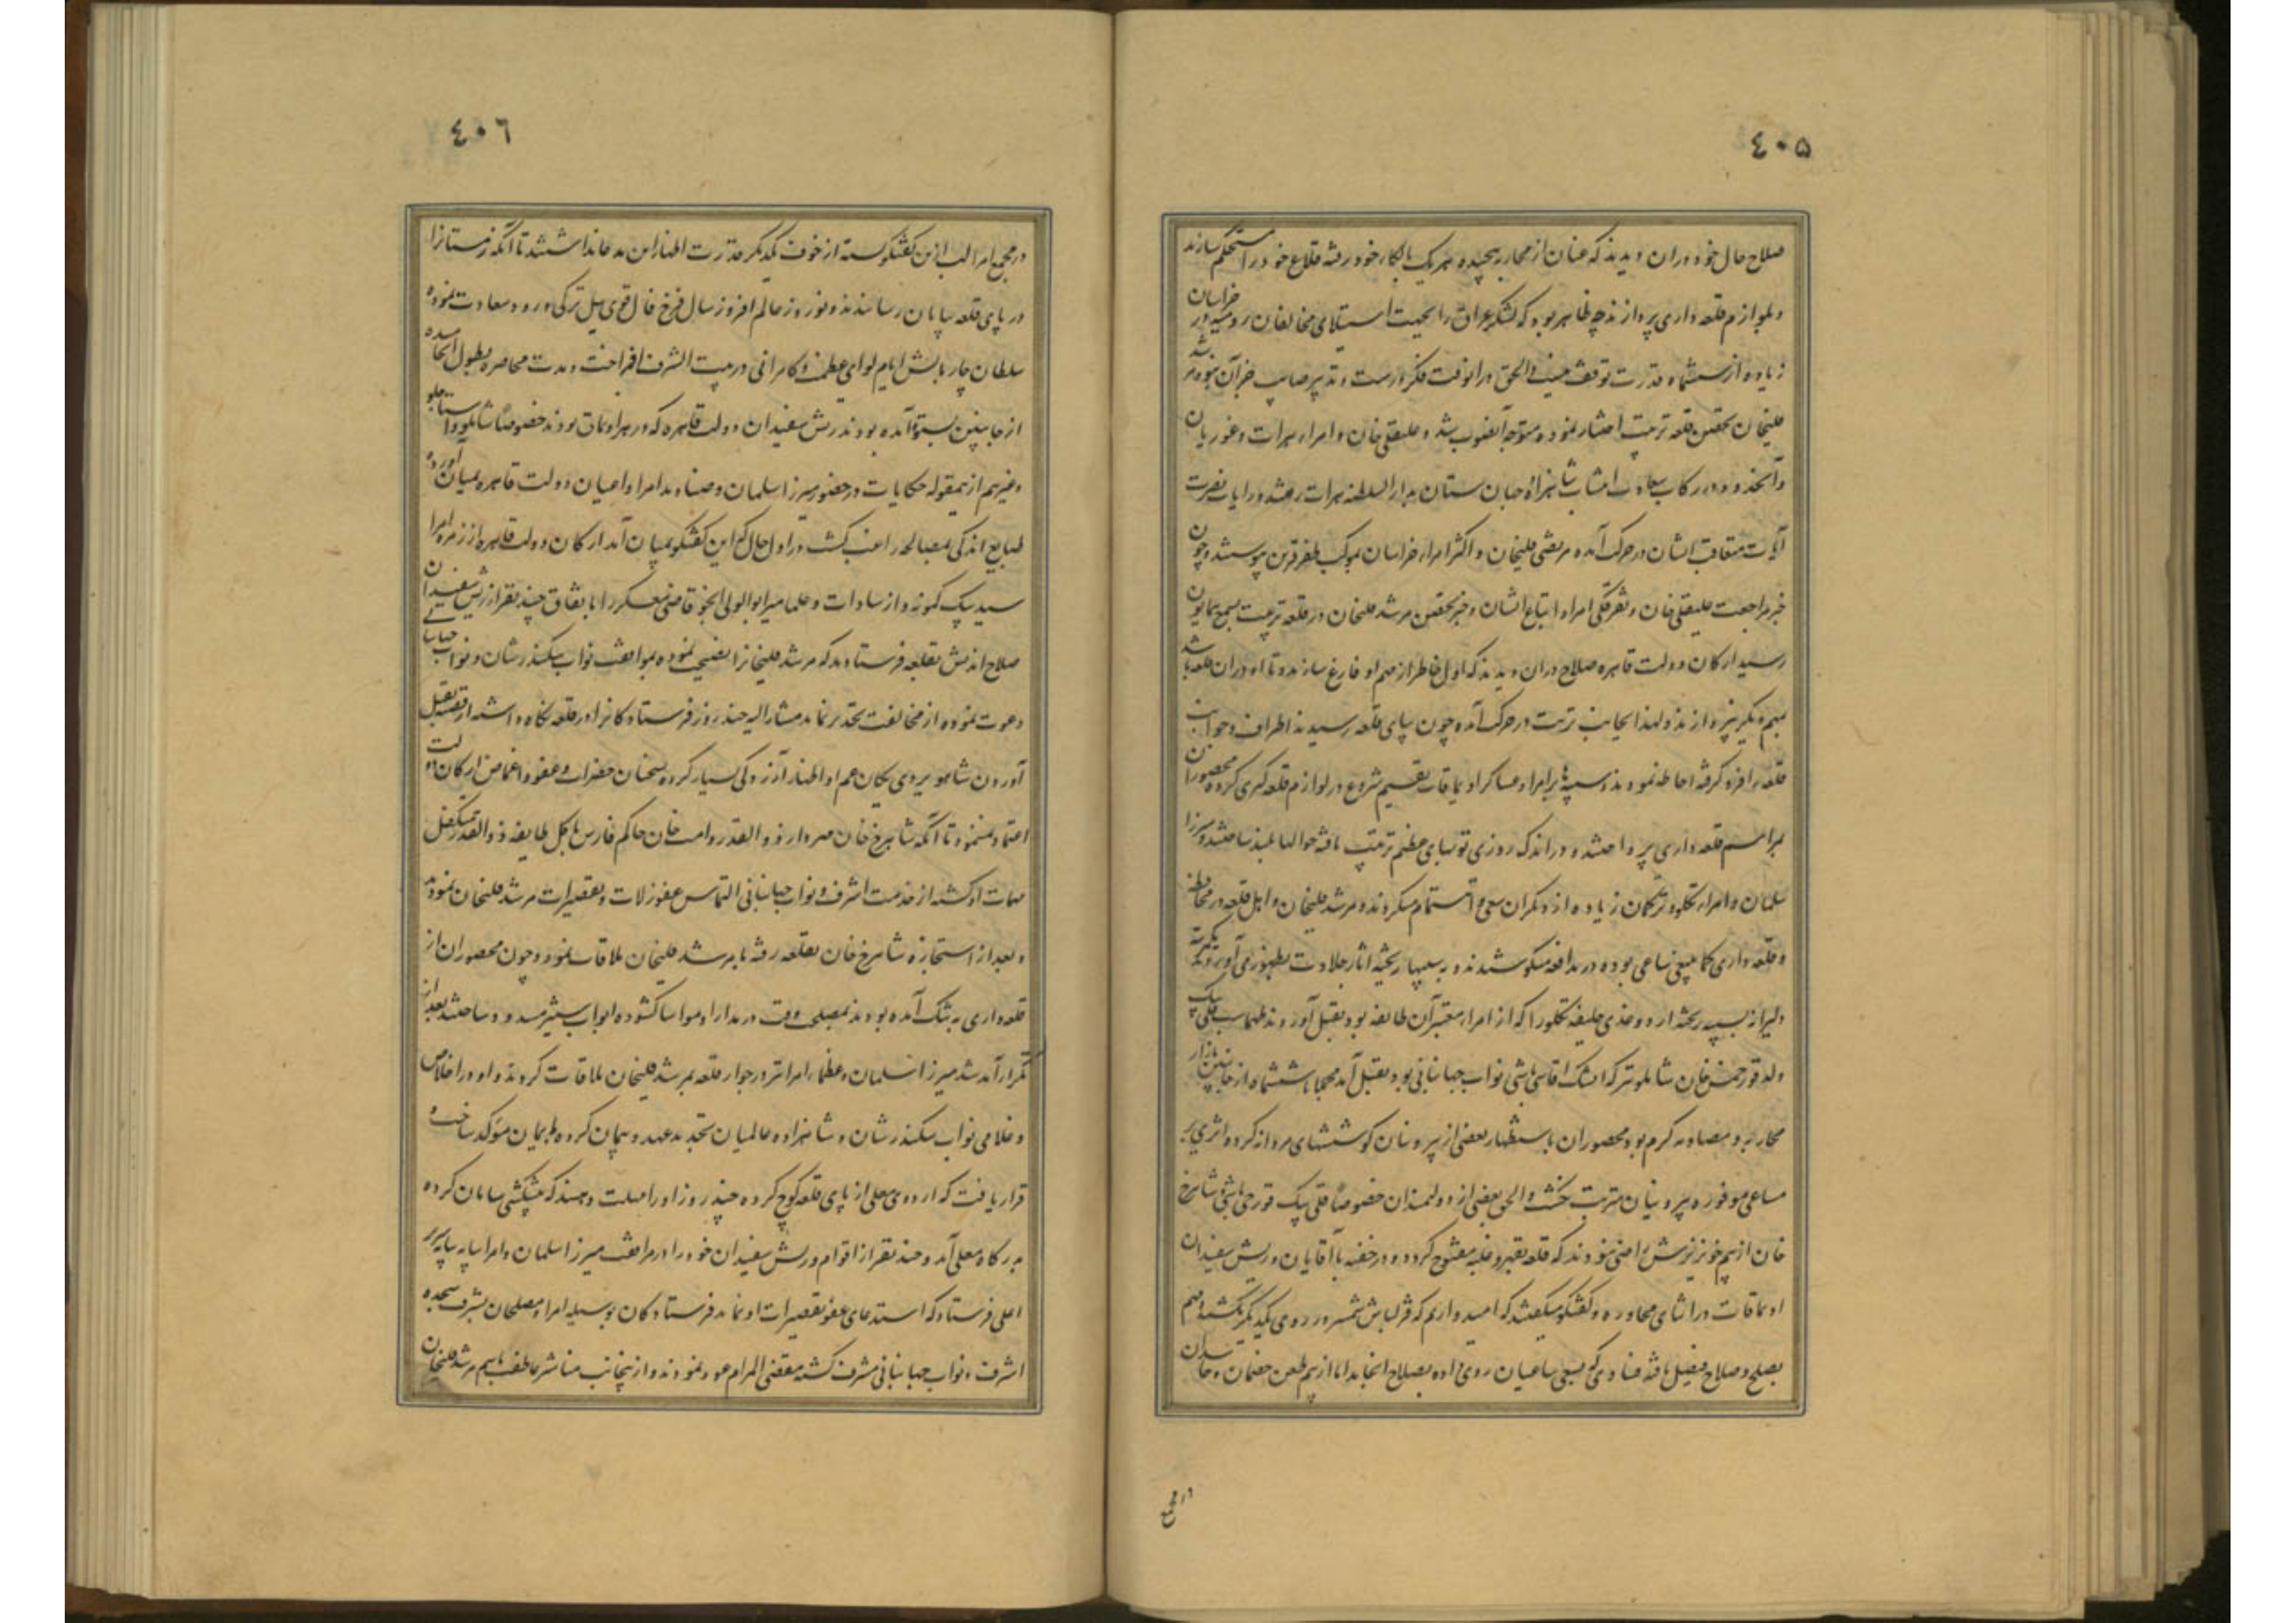 ٤٠٥
صلاح حال خود در ان دیدند که عنان از محاربه پیچیده هر یک بالکاء خود رفته قلاع خود را مستحکم سازند
و بلوازم قلعه داری پردازند چه ظاهر بود که لشکر عراق را بجهت استیلای مخالفان روم سیر در خراسان
زیاده از ششماه قدرت توقف نیست والحق در انوقت فکر درست و تدبیر صایب جز آن نبود مرشد
قلیخان تحصن قلعه تربت اختیار نموده متوجه آنصوب شد و علیقلی خان و امراء هرات و غوریان
و آنحدود در رکاب سعادت انتساب شاهزاده جهان ستان بدار السلطنه هرات رفتند و رایات نصرت
آیات متعاقب ایشان در حرکت آمده مرتضی قلیخان و اکثر امراء خراسان بموکب ظفر قرین پیوستند و چون
خبر مراجعت علیقلی خان و تفرقگی امرا و اتباع ایشان و خبر تحصن مرشد قلیخان در قلعه تربت بسمع همایون
رسید ارکان دولت قاهره صلاح در ان دیدند که اول خاطر از مهم او فارغ سازند و تا او در ان قلعه باشد
بمهم دیگر نپردازند و لهذا بجانب تربت در حرکت آمده چون بپای قلعه رسیدند اطراف و جوانب
قلعه را فرو گرفته احاطه نمودند و سیبه‌ها بر امرا و عساکر اویماقات تقسیم شروع در لوازم قلعه کیری کرده محصوران
بمراسم قلعه داری پرداختند و در اندک روزی توبهای عظیم ترتیب یافته حوالها بلند ساختند و میرزا
سلمان و امراء تکلو و ترکمان زیاده از دیکران سعی و اهتمام میکردند و مرشد قلیخان و اهل قلعه در محافظه
و قلعه داری کما ینبغی ساعی بوده در مدافعه میکوشیدند و به سیبها ریخته اثار جلادت بظهور می آوردند یکمرتبه
دلیرانه بسیبه ریخته اردوغدی خلیفه تکلو را که از امراء معتبر آن طایفه بود بقتل آوردند طهماسب قلی بیک
ولد قورخمس خان شاملو نیز که ایشک اقاسی باشی نواب جهانبانی بود بقتل آمد مجملا ششماه از جانبین بازار
محاربه و مصادمه کرم بود محصوران باستظهار بعضی از بیرونیان کوششهای مردانه کرده اثری بر
مساعی موفوره بیرونیان مترتب نکشت والحق بعضی از دولتمندان خصوصا قلی بیک قورچی باشی و شاهرخ
خان از بیم خونریزش راضی نبودند که قلعه بقهر و غلبه مفتوح کردد و در خفیه با آقایان و ریش سفیدان
اویماقات در اثنای محاوره و کفتکو میکفتند که امیدواریم که قزلباش شمشیر در روی یکدیکر نکشد و مهم
بصلح و صلاح فیصل یافته فسادی که بسعی ساعیان روی داده بصلاح انجامد اما از بیم طعن خصمان و حاسدان
در مجمع
٤٠٦
در مجمع امرا لب ازین کفتکو بسته از خوف یکدیکر قدرت اظهار این مدعا نداشتند تا آنکه زمستانرا
در پای قلعه بپایان رسانیدند و نوروز عالم افروز سال فرخ فال قوی ییل ترکی ورود سعادت نموده
سلطان چار بالش ایام لوای عظمت و کامرانی در بیت الشرف افراخت و مدت محاصره بطول انجامیده
از جانبین بستوه آمده بودند ریش سفیدان دولت قاهره که در هر اویماق بودند خصوصا شاملو و استاجلو
و غیرهم ازینمقوله حکایات در حضور میرزا سلمان و صنادید امرا و اعیان دولت قاهره بمیان آورده
طبایع اندکی بمصالحه راغب کشت و در اول حال که این کفتکو بمیان آمد ارکان دولت قاهره از زمره امرا
سید بیک کمونه و از سادات و علما میر ابو الولی انجو قاضی معسکر را باتفاق چند نفر از ریش سفیدان
صلاح اندیش بقلعه فرستادند که مرشد قلیخانرا نصیحت نموده بموافقت نواب سکندر شان و نواب جهانبانی
دعوت نموده از مخالفت تحذیر نمایند مشار الیه چند روز فرستادکانرا در قلعه نکاه داشته از قضیه بقتل
آوردن شاهویردی یکان عم او اظهار آزردکی بسیار کرده بسخنان حضرات و عفو و اغماض ارکان دولت
اعتماد نمینمود تا آنکه شاهرخ خان مهردار ذوالقدر و امت خان حاکم فارس بل کل طایفه ذوالقدر متکفل
مهمات او کشته از خدمت اشرف و نواب جهانبانی التماس عفو زلات و تقصیرات مرشد قلیخان نمودند
و بعد از استجازه شاهرخ خان بقلعه رفته با مرشد قلیخان ملاقات نمود و چون محصوران از
قلعه داری به تنک آمده بودند بمصلحت وقت در مدارا و مواسا کشوده ابواب ستیز مسدود ساختند بعد از
تکرار آمد شد میرزا سلمان و عظماء امرا نیز در جوار قلعه بمرشد قلیخان ملاقات کردند و او در اخلاص
و غلامی نواب سکندر شان و شاهزاده عالمیان تجدید عهد و پیمان کرده بایمان مؤکد ساخت و
قرار یافت که اردوی معلی از پای قلعه کوچ کرده چند روز او را مهلت دهند که پیشکشی سامان کرده
بدرکاه معلی آید و چند نفر از اقوام و ریش سفیدان خود را در مرافقت میرزا سلمان و امرا بپایه سریر
اعلی فرستاد که استدعای عفو تقصیرات او نمایند فرستادکان بوسیله امرا و مصلحان بشرف سجده
اشرف و نواب جهانبانی مشرف کشته مقضی المرام عود نمودند و ازینجانب مناشیر عاطفت باسم مرشد قلیخان